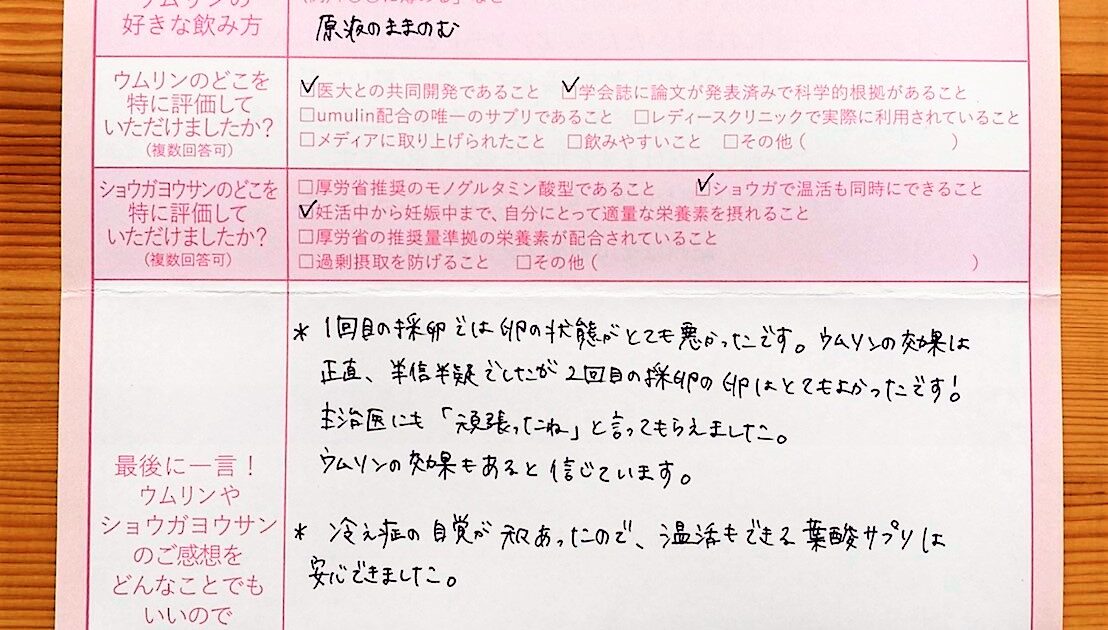 ウムリンの
好きな飲み方
原液のままのむ
ウムリンのどこを
特に評価して
いただけましたか?
(複数回答可)
医大との共同開発であること □学会誌に論文が発表済みで科学的根拠があること
□umulin配合の唯一のサプリであること □レディースクリニックで実際に利用されていること
□メディアに取り上げられたこと □飲みやすいこと □その他( )
ショウガヨウサンのどこを
特に評価して
いただけましたか?
(複数回答可)
□厚労省推奨のモノグルタミン酸型であること ☑ショウガで温活も同時にできること
☑妊活中から妊娠中まで、自分にとって適量な栄養素を摂れること
□厚労省の推奨量準拠の栄養素が配合されていること
□過剰摂取を防げること □その他( )
最後に一言!
ウムリンや
ショウガヨウサン
のご感想を
どんなことでも
いいので
* 1回目の採卵では卵の状態がとても悪かったです。ウムリンの効果は
正直、半信半疑でしたが2回目の採卵の卵はとてもよかったです!
主治医にも「頑張ったね」と言ってもらえました。
ウムリンの効果もあると信じています。
* 冷え症の自覚が あったので、温活もできる葉酸サプリは
安心できました。